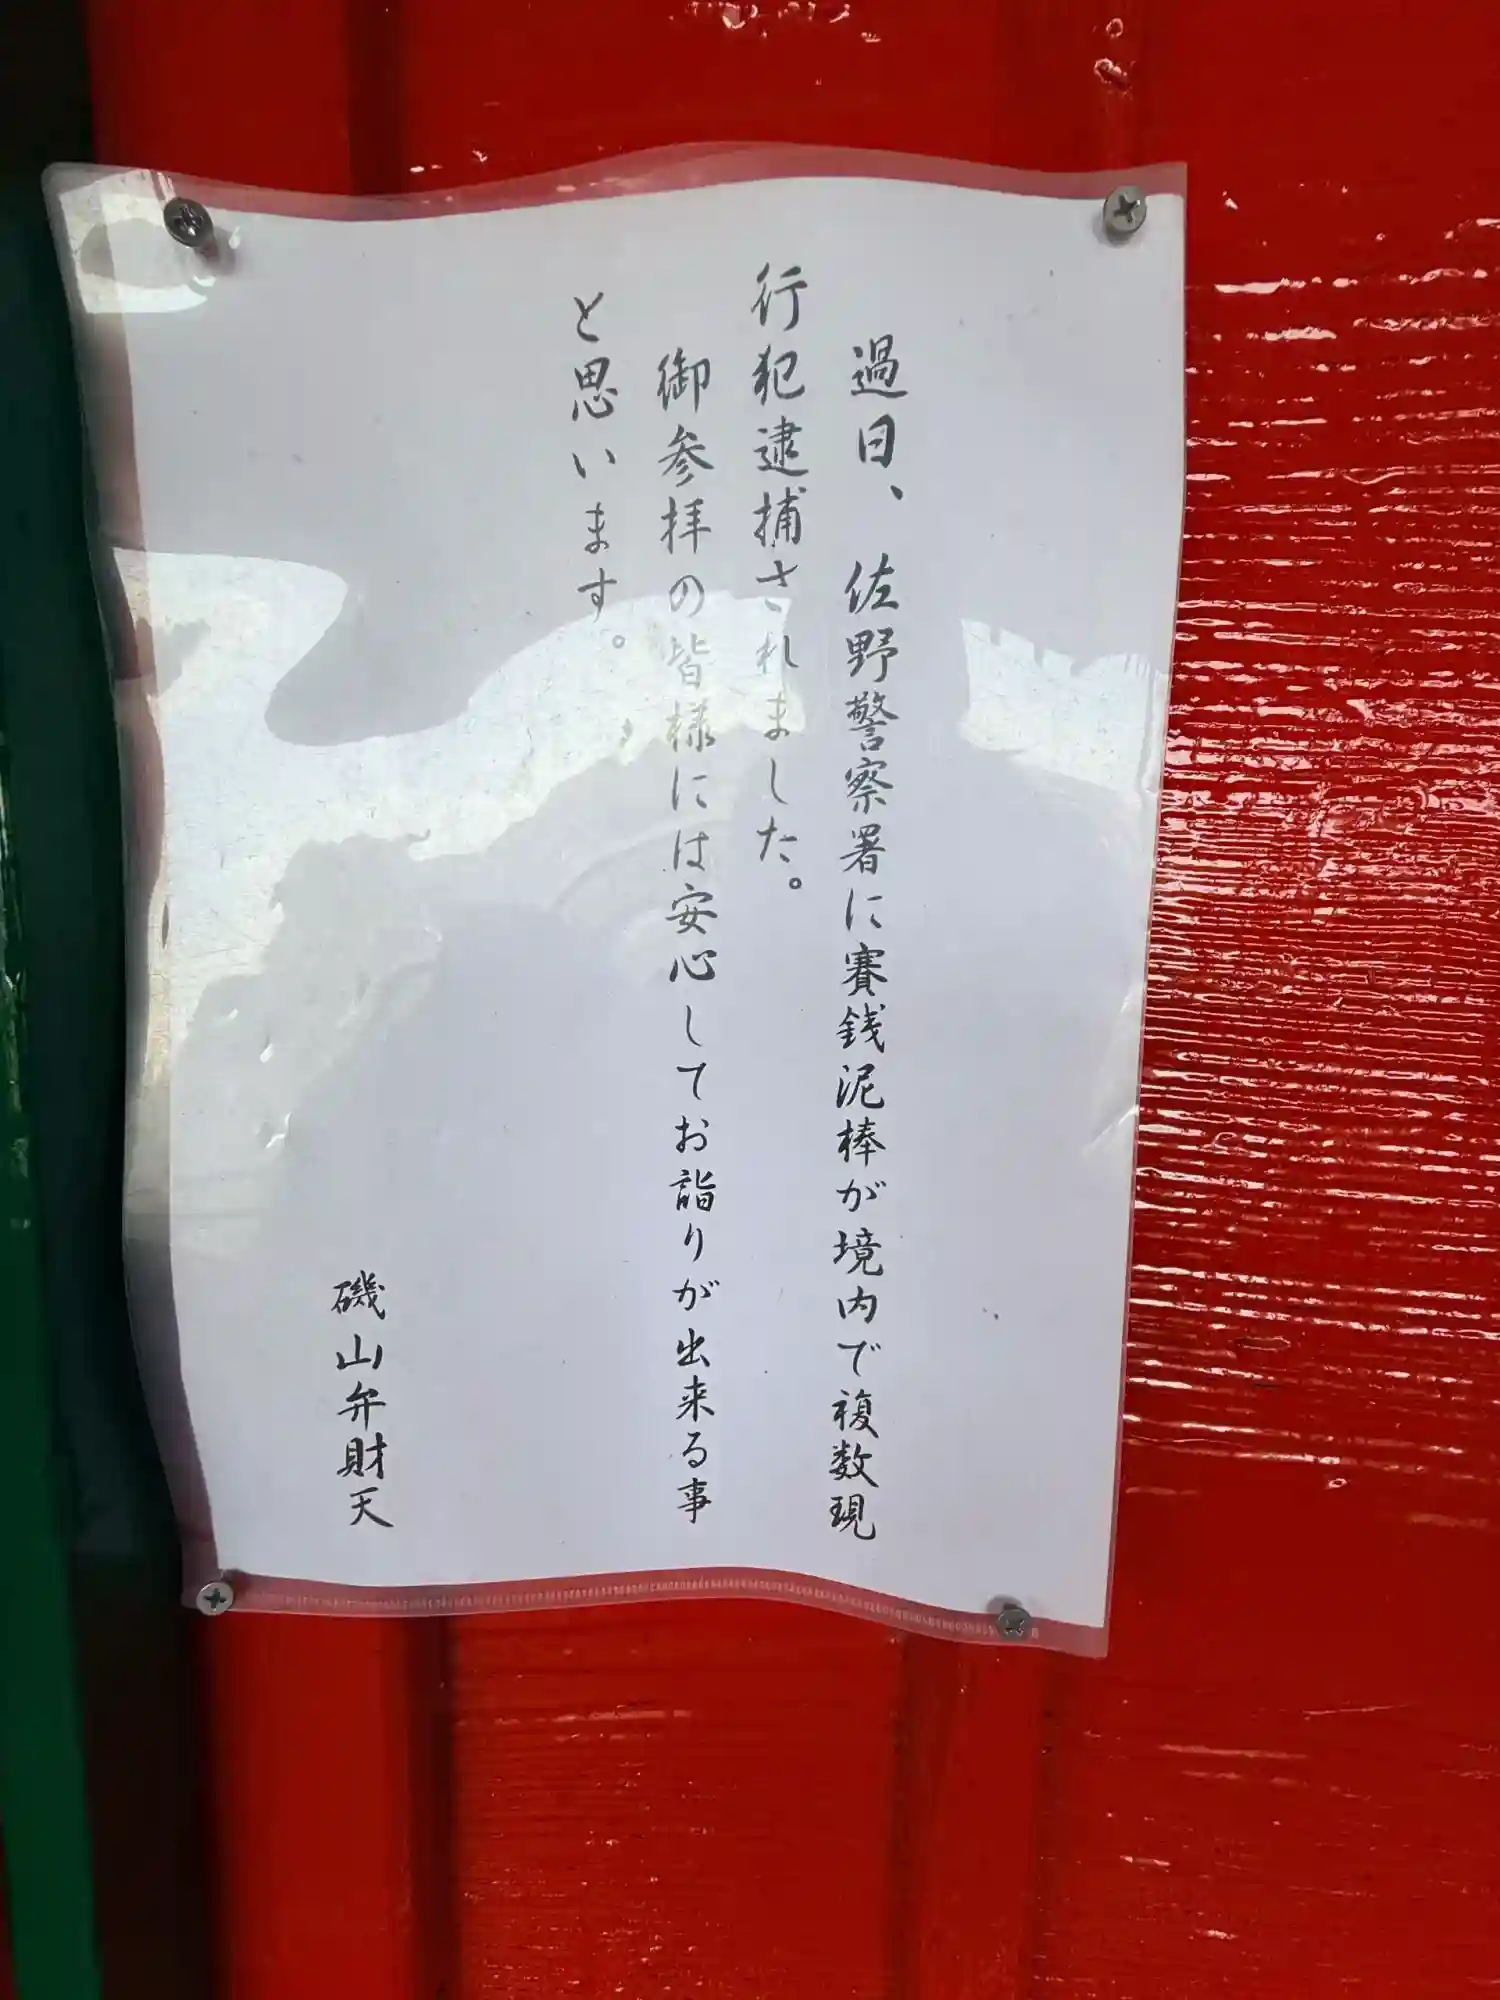 過日、佐野警察署に賽銭泥棒が境内で複数現
行犯逮捕されました。
御参拝の皆様には安心してお詣りが出来る事
と思います。
磯山弁財天